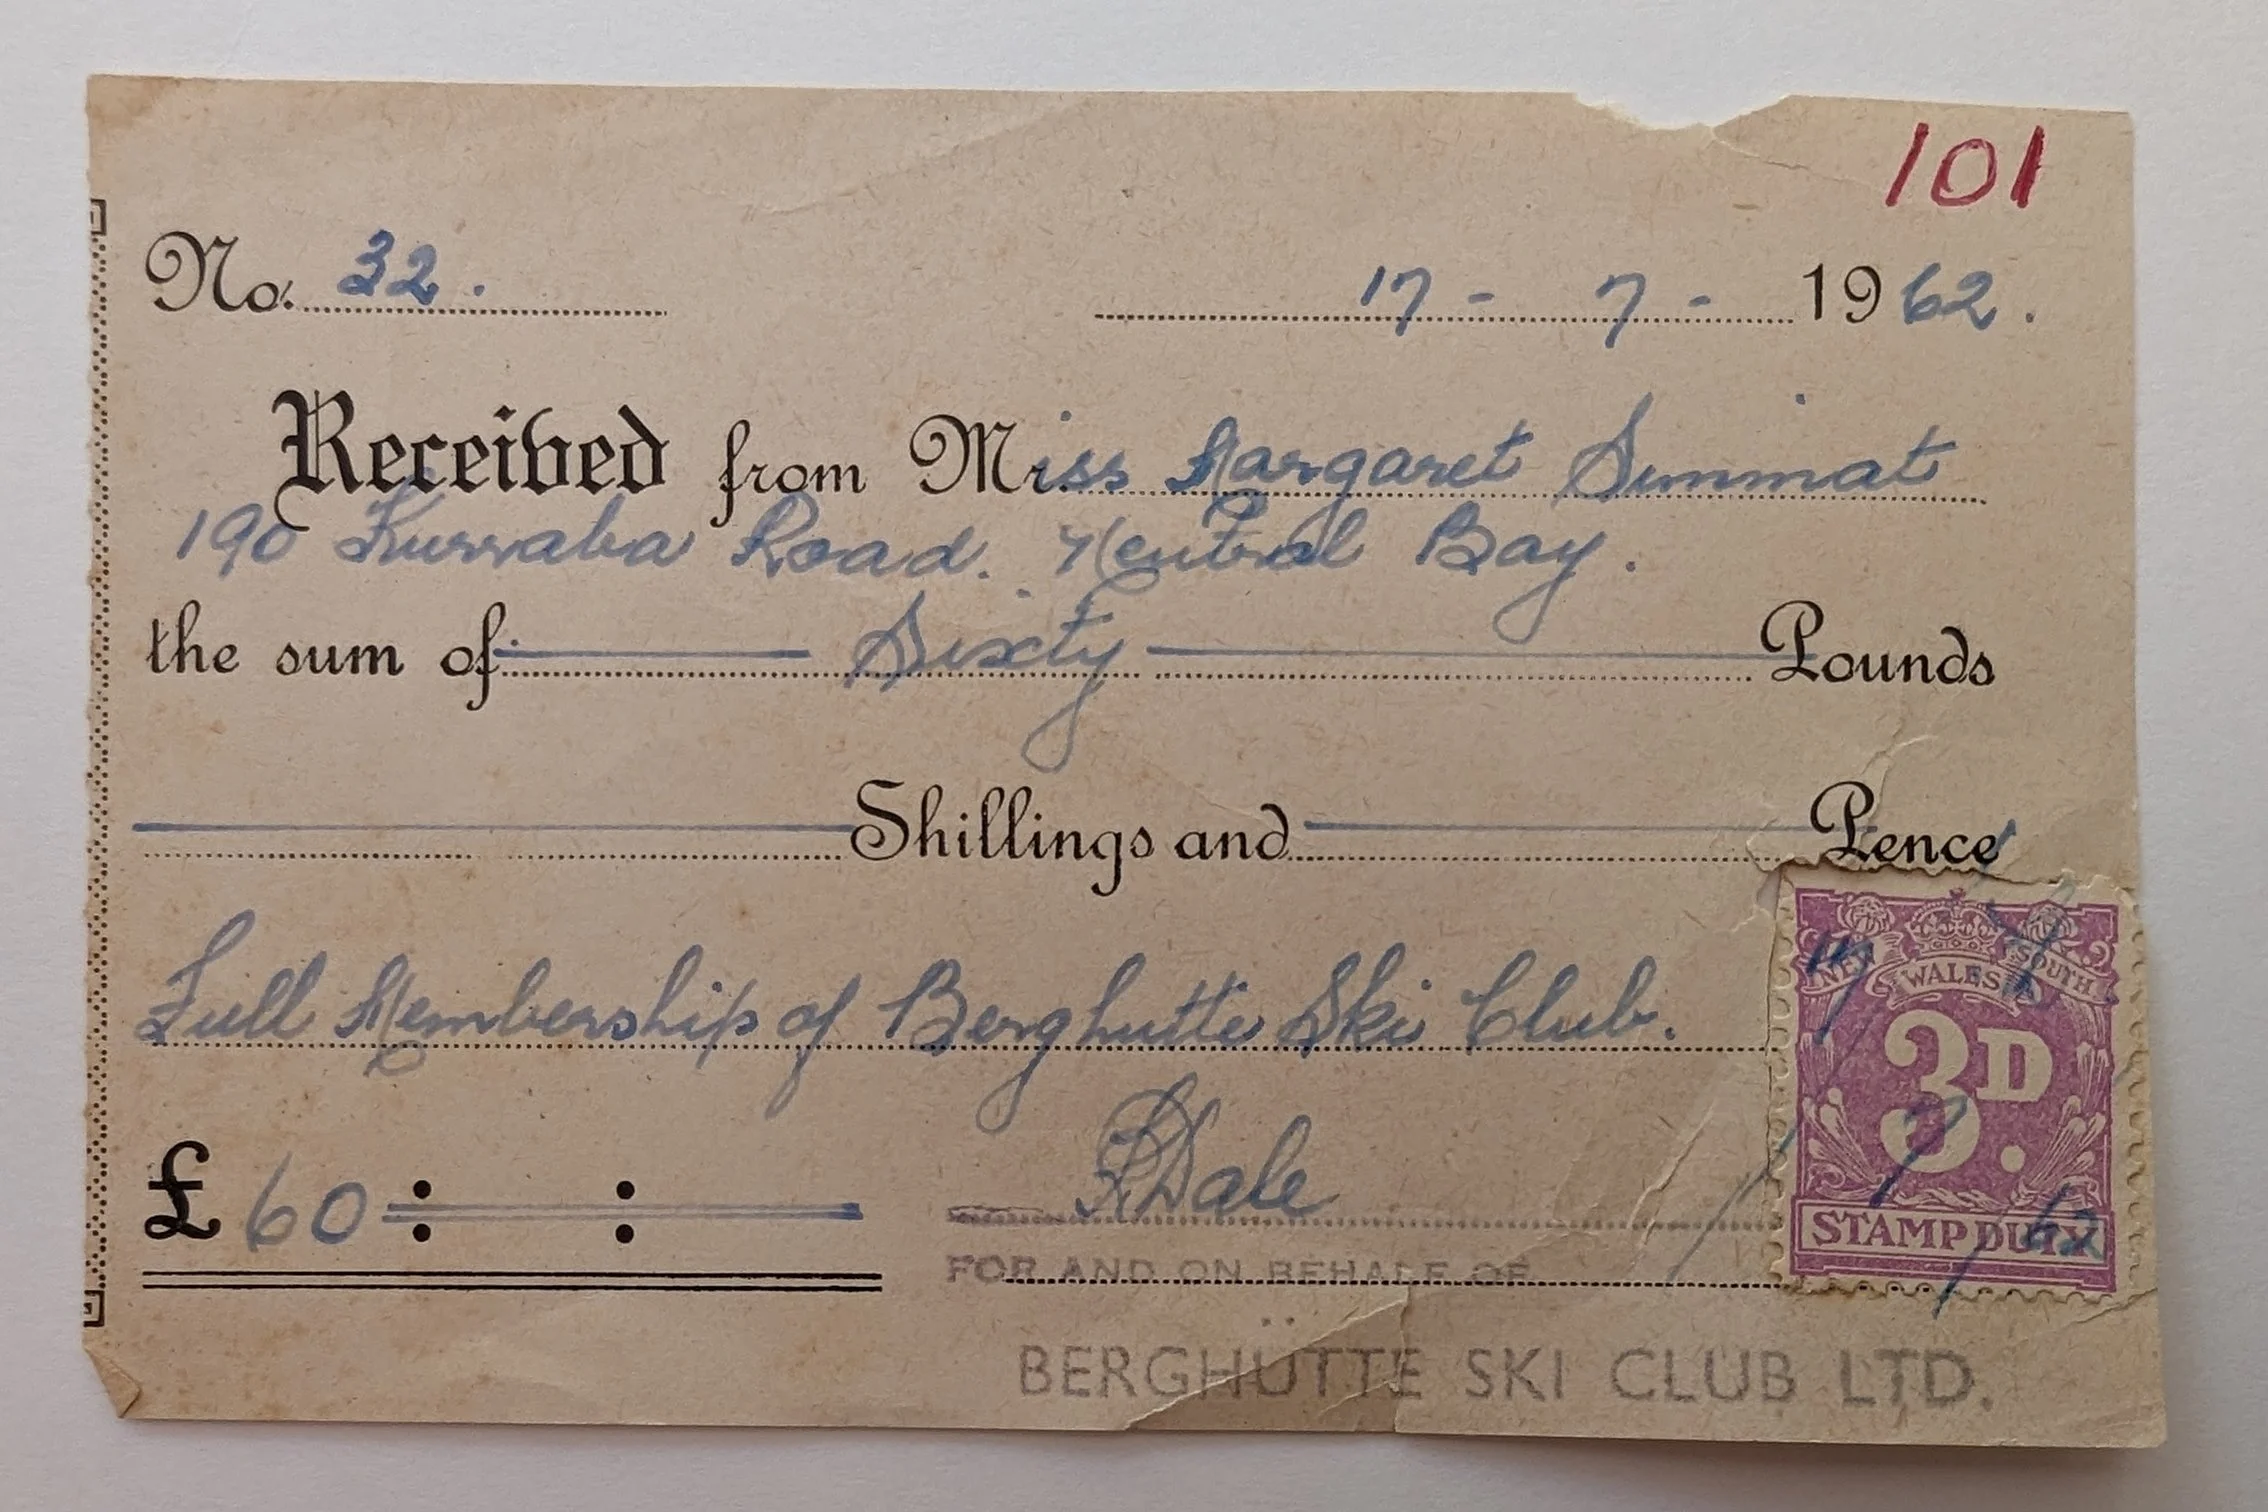 101
No. 32. 17 - 7 - 1962.
Received from Miss Margaret Simmat
190 Kurraba Road. Neutral Bay.
the sum of Sixty Pounds
Shillings and Pence
Full Membership of Berghutte Ski Club.
NEW SOUTH WALES
3D.
STAMP DUTY
17/7/62
£ 60 : :
RDale
FOR AND ON BEHALF OF
BERGHÜTTE SKI CLUB LTD.